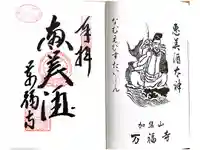 奉拝
恵美酒
萬福寺
恵美酒太神
なむえびすだいじん
加集山
万福寺